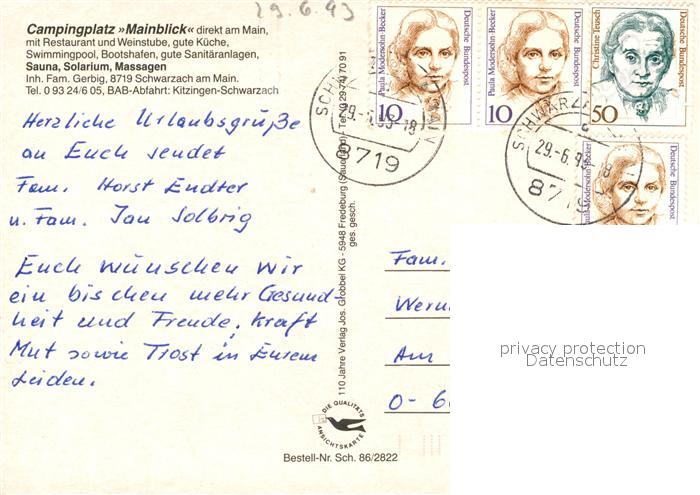 29.6.93
Campingplatz »Mainblick« direkt am Main,
mit Restaurant und Weinstube, gute Küche,
Swimmingpool, Bootshafen, gute Sanitäranlagen,
Sauna, Solarium, Massagen
Inh. Fam. Gerbig, 8719 Schwarzach am Main.
Tel. 0 93 24/6 05, BAB-Abfahrt: Kitzingen-Schwarzach
Herzliche Urlaubsgrüße
an Euch sendet
Fam. Horst Endter
u. Fam. Jan Solbrig
Euch wünschen wir
ein bischen mehr Gesund-
heit und Freude, Kraft
Mut sowie Trost in Eurem
Leiden.
110 Jahre Verlag Jos. Grobbel KG - 5948 Fredeburg (Sauerland) - Tel.
ges. gesch.
DIE QUALITÄTS
ANSICHTSKARTE
Bestell-Nr. Sch. 86/2822
Paula Modersohn-Becker
10
Deutsche Bundespost
Paula Modersohn-Becker
10
Deutsche Bundespost
Christine Teusch
50
Deutsche Bundespost
Paula Modersohn-Becker
Deutsche Bundespost
8719
29.-6.
871
Fam.
Wern
Am
0-6
privacy protection
Datenschutz